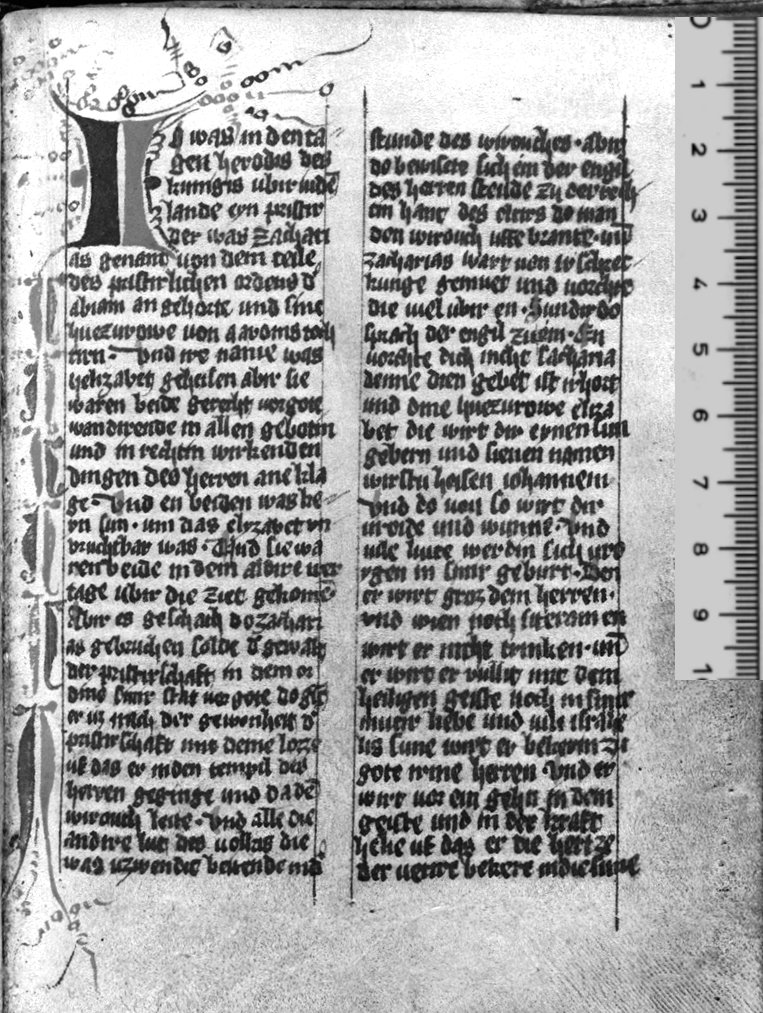 Is was in den ta
gen herodis des
kunigis ubir iude
lande eyn pristir
der was Zachari
as genant von dem teile
des pristirlichen ordens d̕
abiam an gehorte und sine
huezurowe von aaronis toch
tirn · Vnd ire name was
helizabet geheisen abir sie
waren beide gerecht vor gote
wandirende in allen gebotin
und in rechtin wirkenden
dingen des herren ane kla
ge · Vnd en beiden was ke
yn sun · um das elyzabet vn
vruchtbar was · Und sie wa
ren beide in dem aldire irer
tage ubir die ziet gekome̅ ·
Abir es geschach do zachari
as gebruchen solde d̕ gewalt
der pristirschaft in dem or
dine sinir
er uz nach der gewonheit d̕
pristirschaft mit deme lozze
uf das er in den tempil des
herren geginge und da de̅
wirouch leite · Vnd alle die
andire lute des volkis die
was uzwendic betende in d̕
stunde des wirouches · abir
do bewisete sich im der engil
des herren stende zu der rech
tin hant des altirs do man
den wirouch uffe brante · un̅
zacharias wart von ir schrec
kunge gemuet und vorchte
die viel ubir en · Sundir do
sprach der engil zu em · En
vorchte dich nicht sacharia
denne dien gebet ist irhort
und dine huezurowe eliza
bet die wirt dir eynen sun
gebern und sienen namen
wirstu heisen iohannem
Vnd do von so wirt dir
vroide und wunne · Vnd
vile lute werdin sich vro
ygen in sinir geburt · Den
er wirt groz dem herren ·
vnd wien noch siceram en
wirt er nicht trinken · un̅
er wirt er vullit mit dem
heiligen geiste noch in sinir
muter liebe und vile israhe
lis sune wirt er bekerin zu
gote irme herren Vnd er
wirt vor em gehn in dem
geiste und in der kraft
helie uf das er die hertze
der vetere bekere in die sune